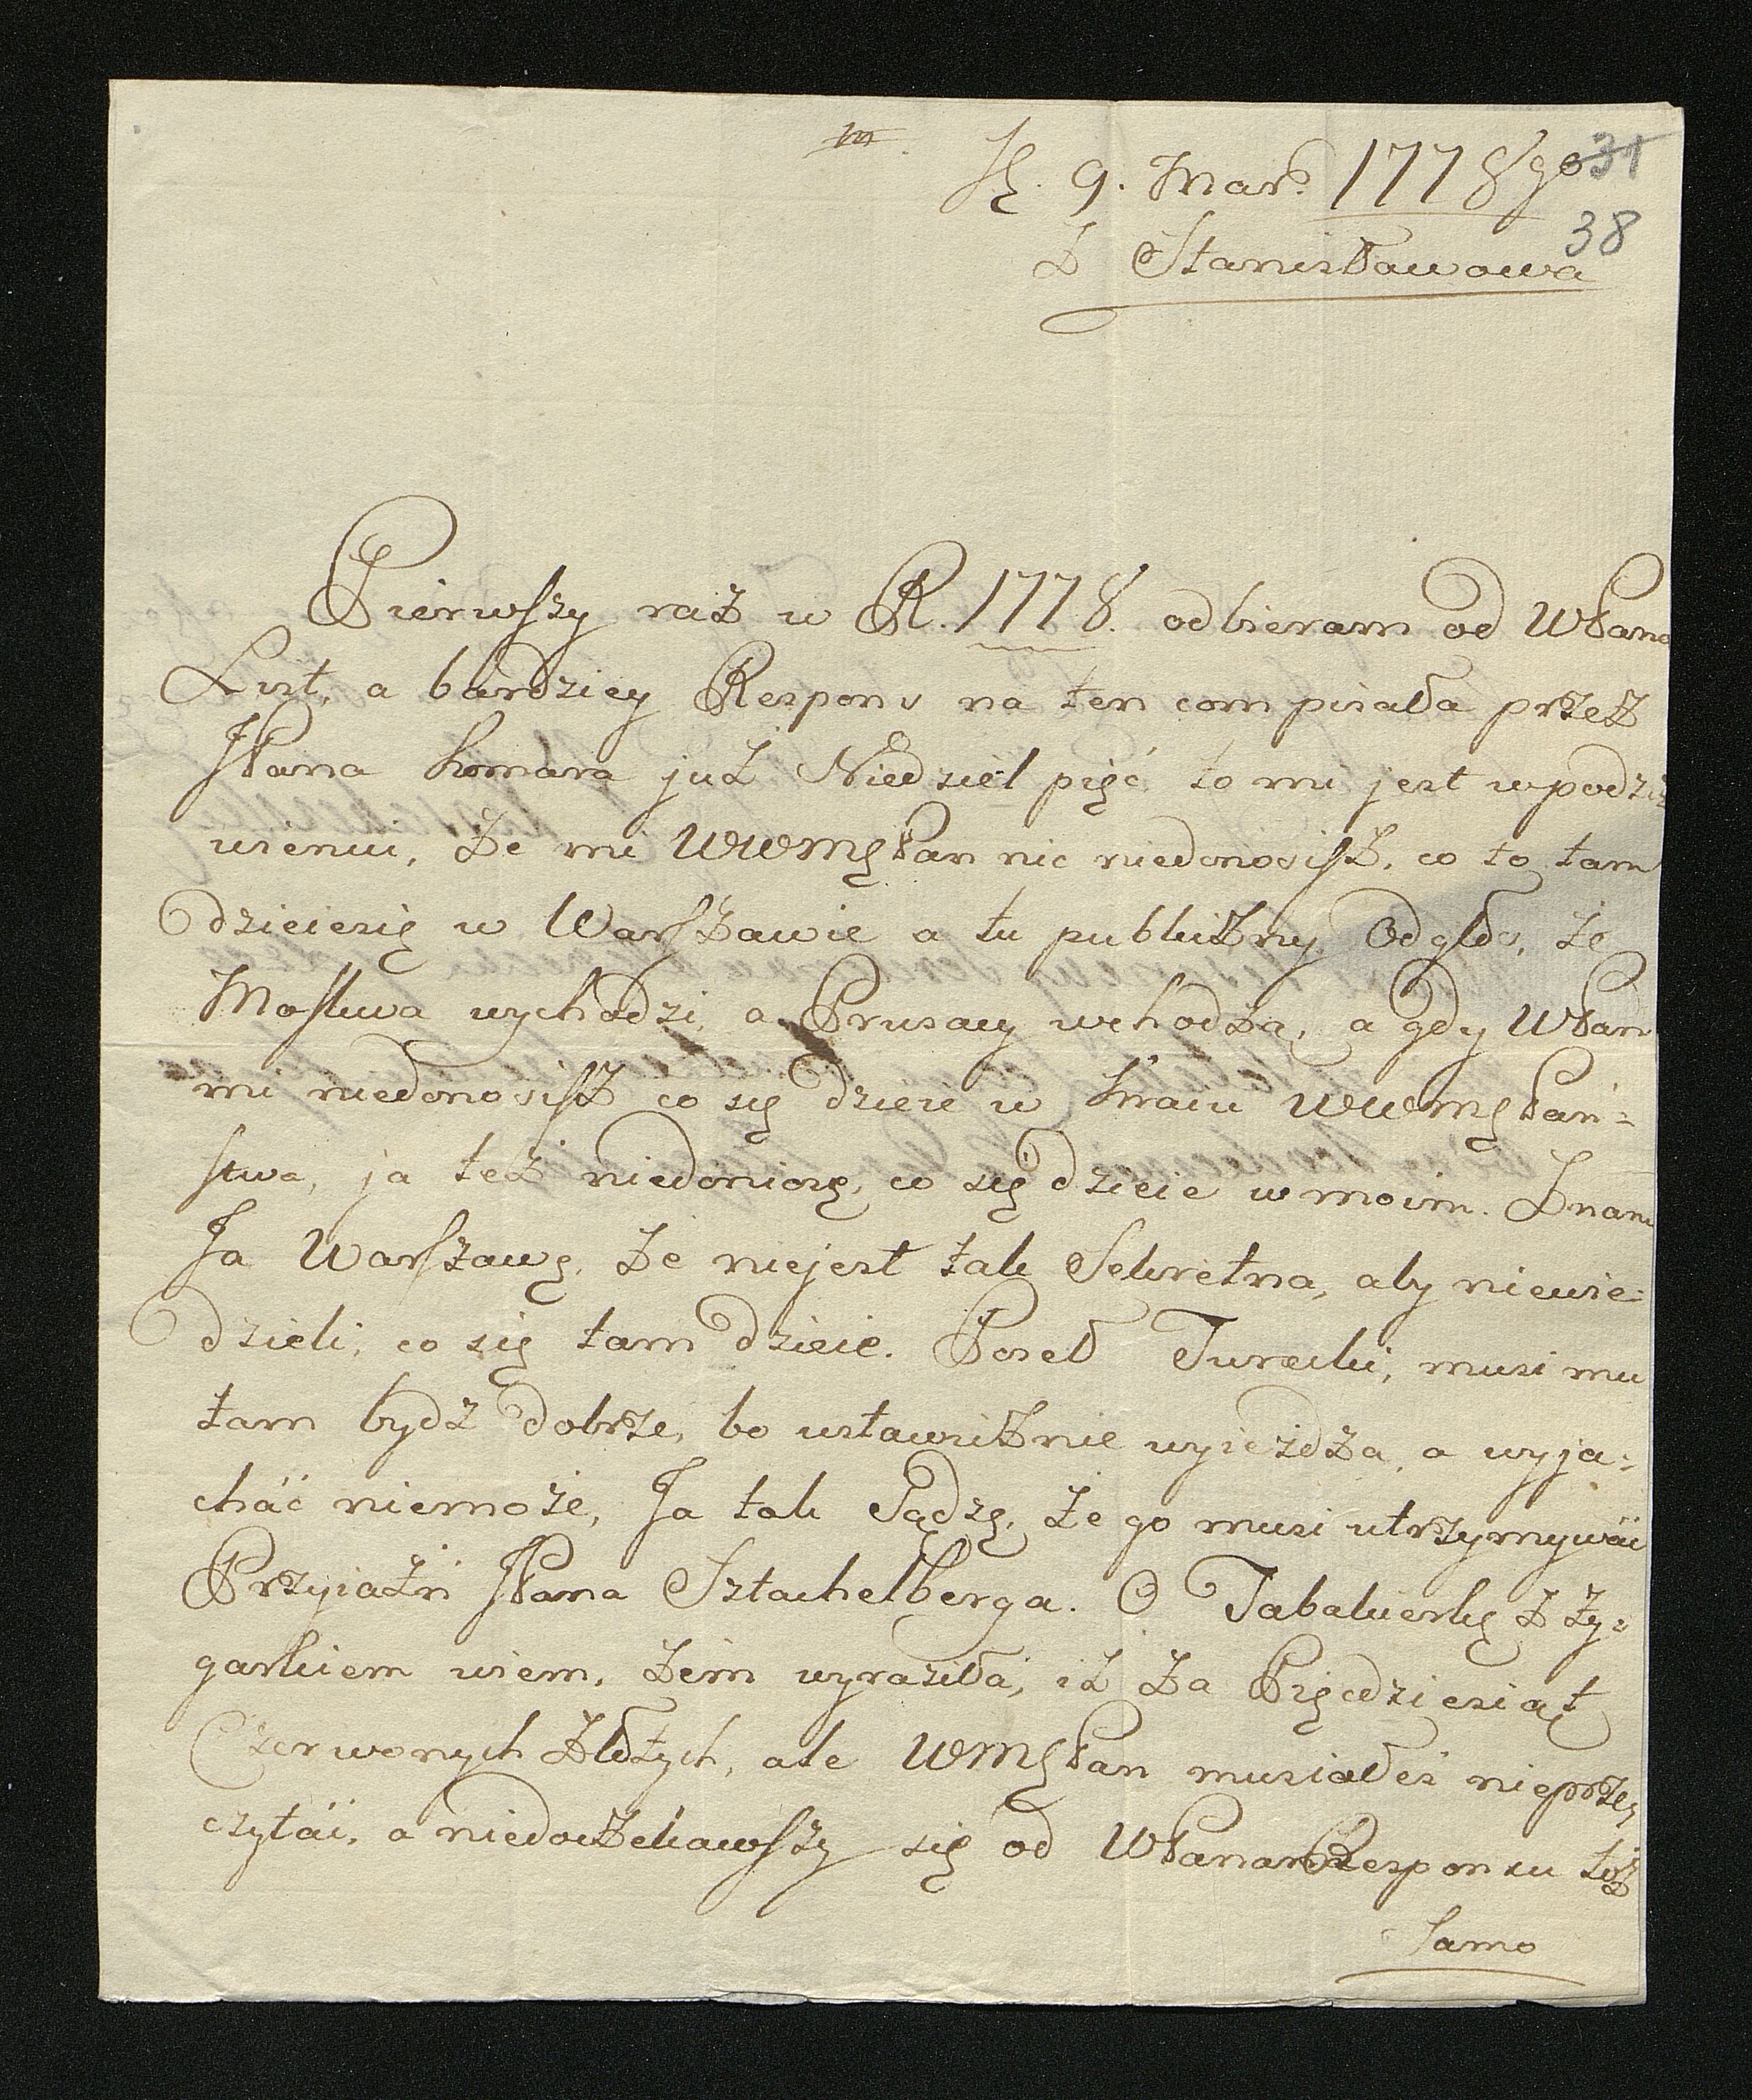 9. Mar. 1778go 31
38
Z Stanisławowa
Pierwszy raz w R. 1778. odbieram od WPana
List, a bardziey Respons na ten com pisała przez
JPana Komara juz Niedziel pięć, to mi jest wpodzi
wieniu, że mi WWMgPan nic niedonosisz, co to tam
dzieiesię w Warszawie a tu publiczny Odgłos, że
Moskwa wychodzi, a Prusacy wchodzą, a gdy WPan
mi niedonosisz co się dzieie w Kraiu WWMgPań-
stwa, ja też niedoniosę, co się dzieie w moim. Znam
Ja Warszawę, że niejest tak Sekretna, aby niewie-
dzieli, co się tam dzieie. Poseł Turecki, musi mu
tam bydź dobrze, bo ustawicznie wyieżdża, a wyja-
chać niemoże, Ja tak Sądzę, że go musi utrzymywać
Przyiaźń JPana Sztachelberga. O Tabakierkę z Zy-
garkiem wiem, żem wyraziła, iż za Pięćdziesiąt
Czerwonych Złotych, ale WMgPan musiałeś nieprze-
czytać, a niedoczekawszy się od WPana Responsu toż
Samo